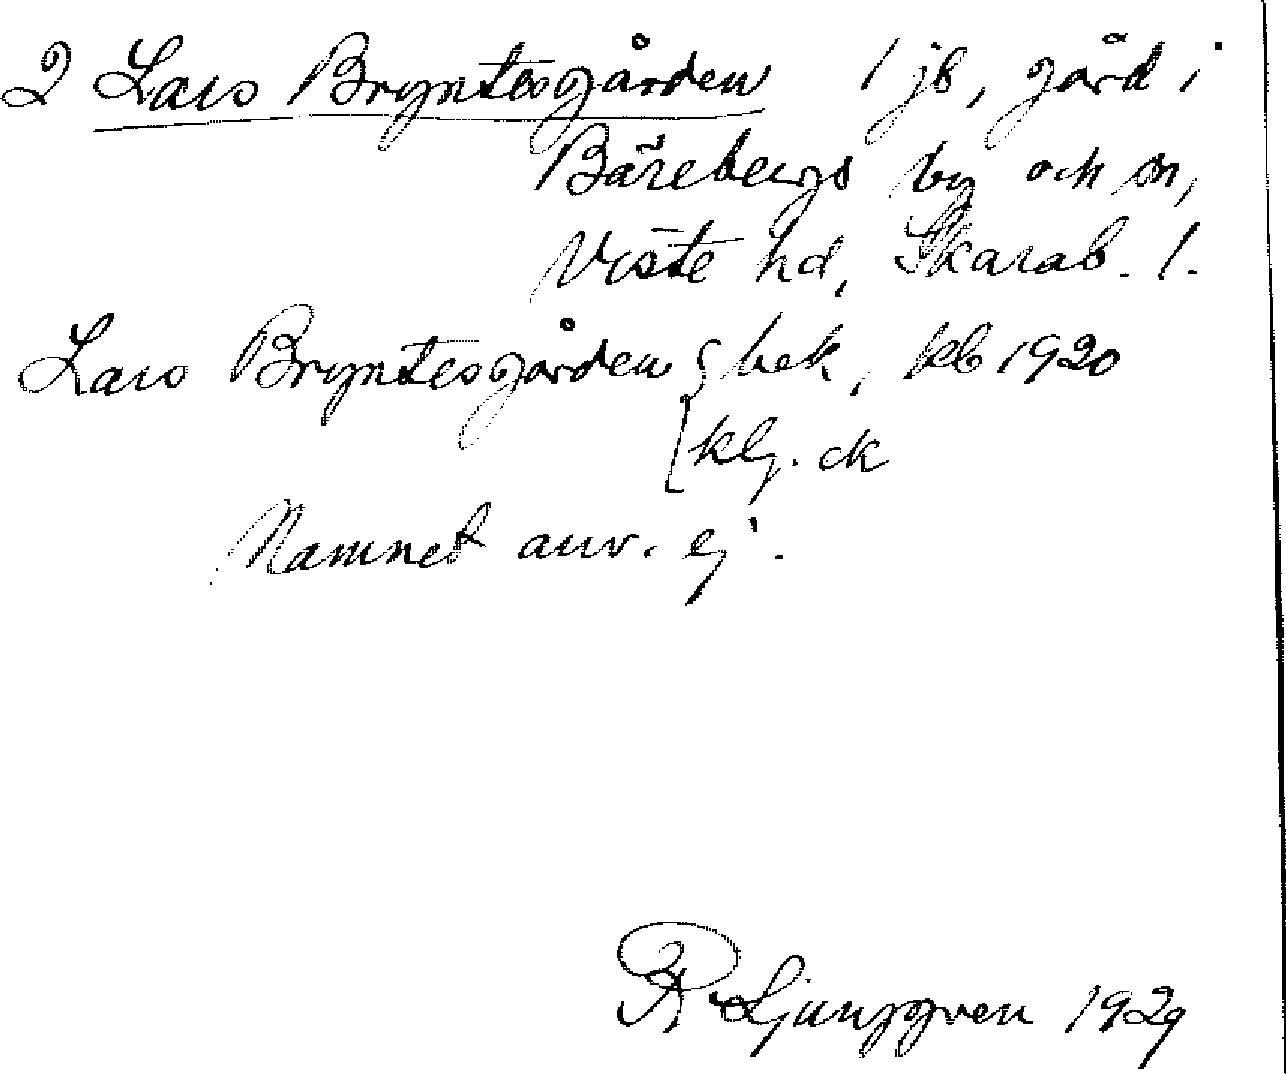 2 Lars Bryntesgården 1 jb, gård i
Bärebergs by och sn,
Viste hd, Skarab. l.
Lars Bryntesgården bek, kb 1920
[klg. ck
Namnet anv. ej.
R Ljunggren 1929